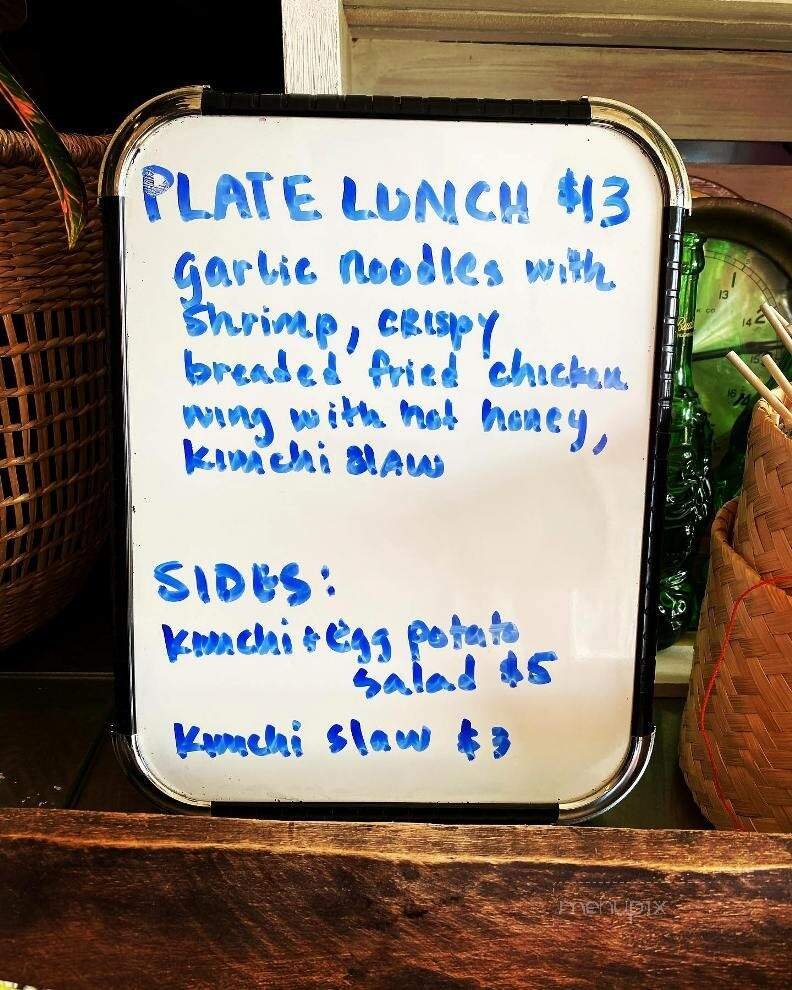 PLATE LUNCH $13
garlic noodles with
shrimp, crispy
breaded fried chicken
wing with hot honey,
kimchi slaw
SIDES:
Kimchi + egg potato
salad $5
Kimchi slaw $3
1
13
2
14
15
16
menupix